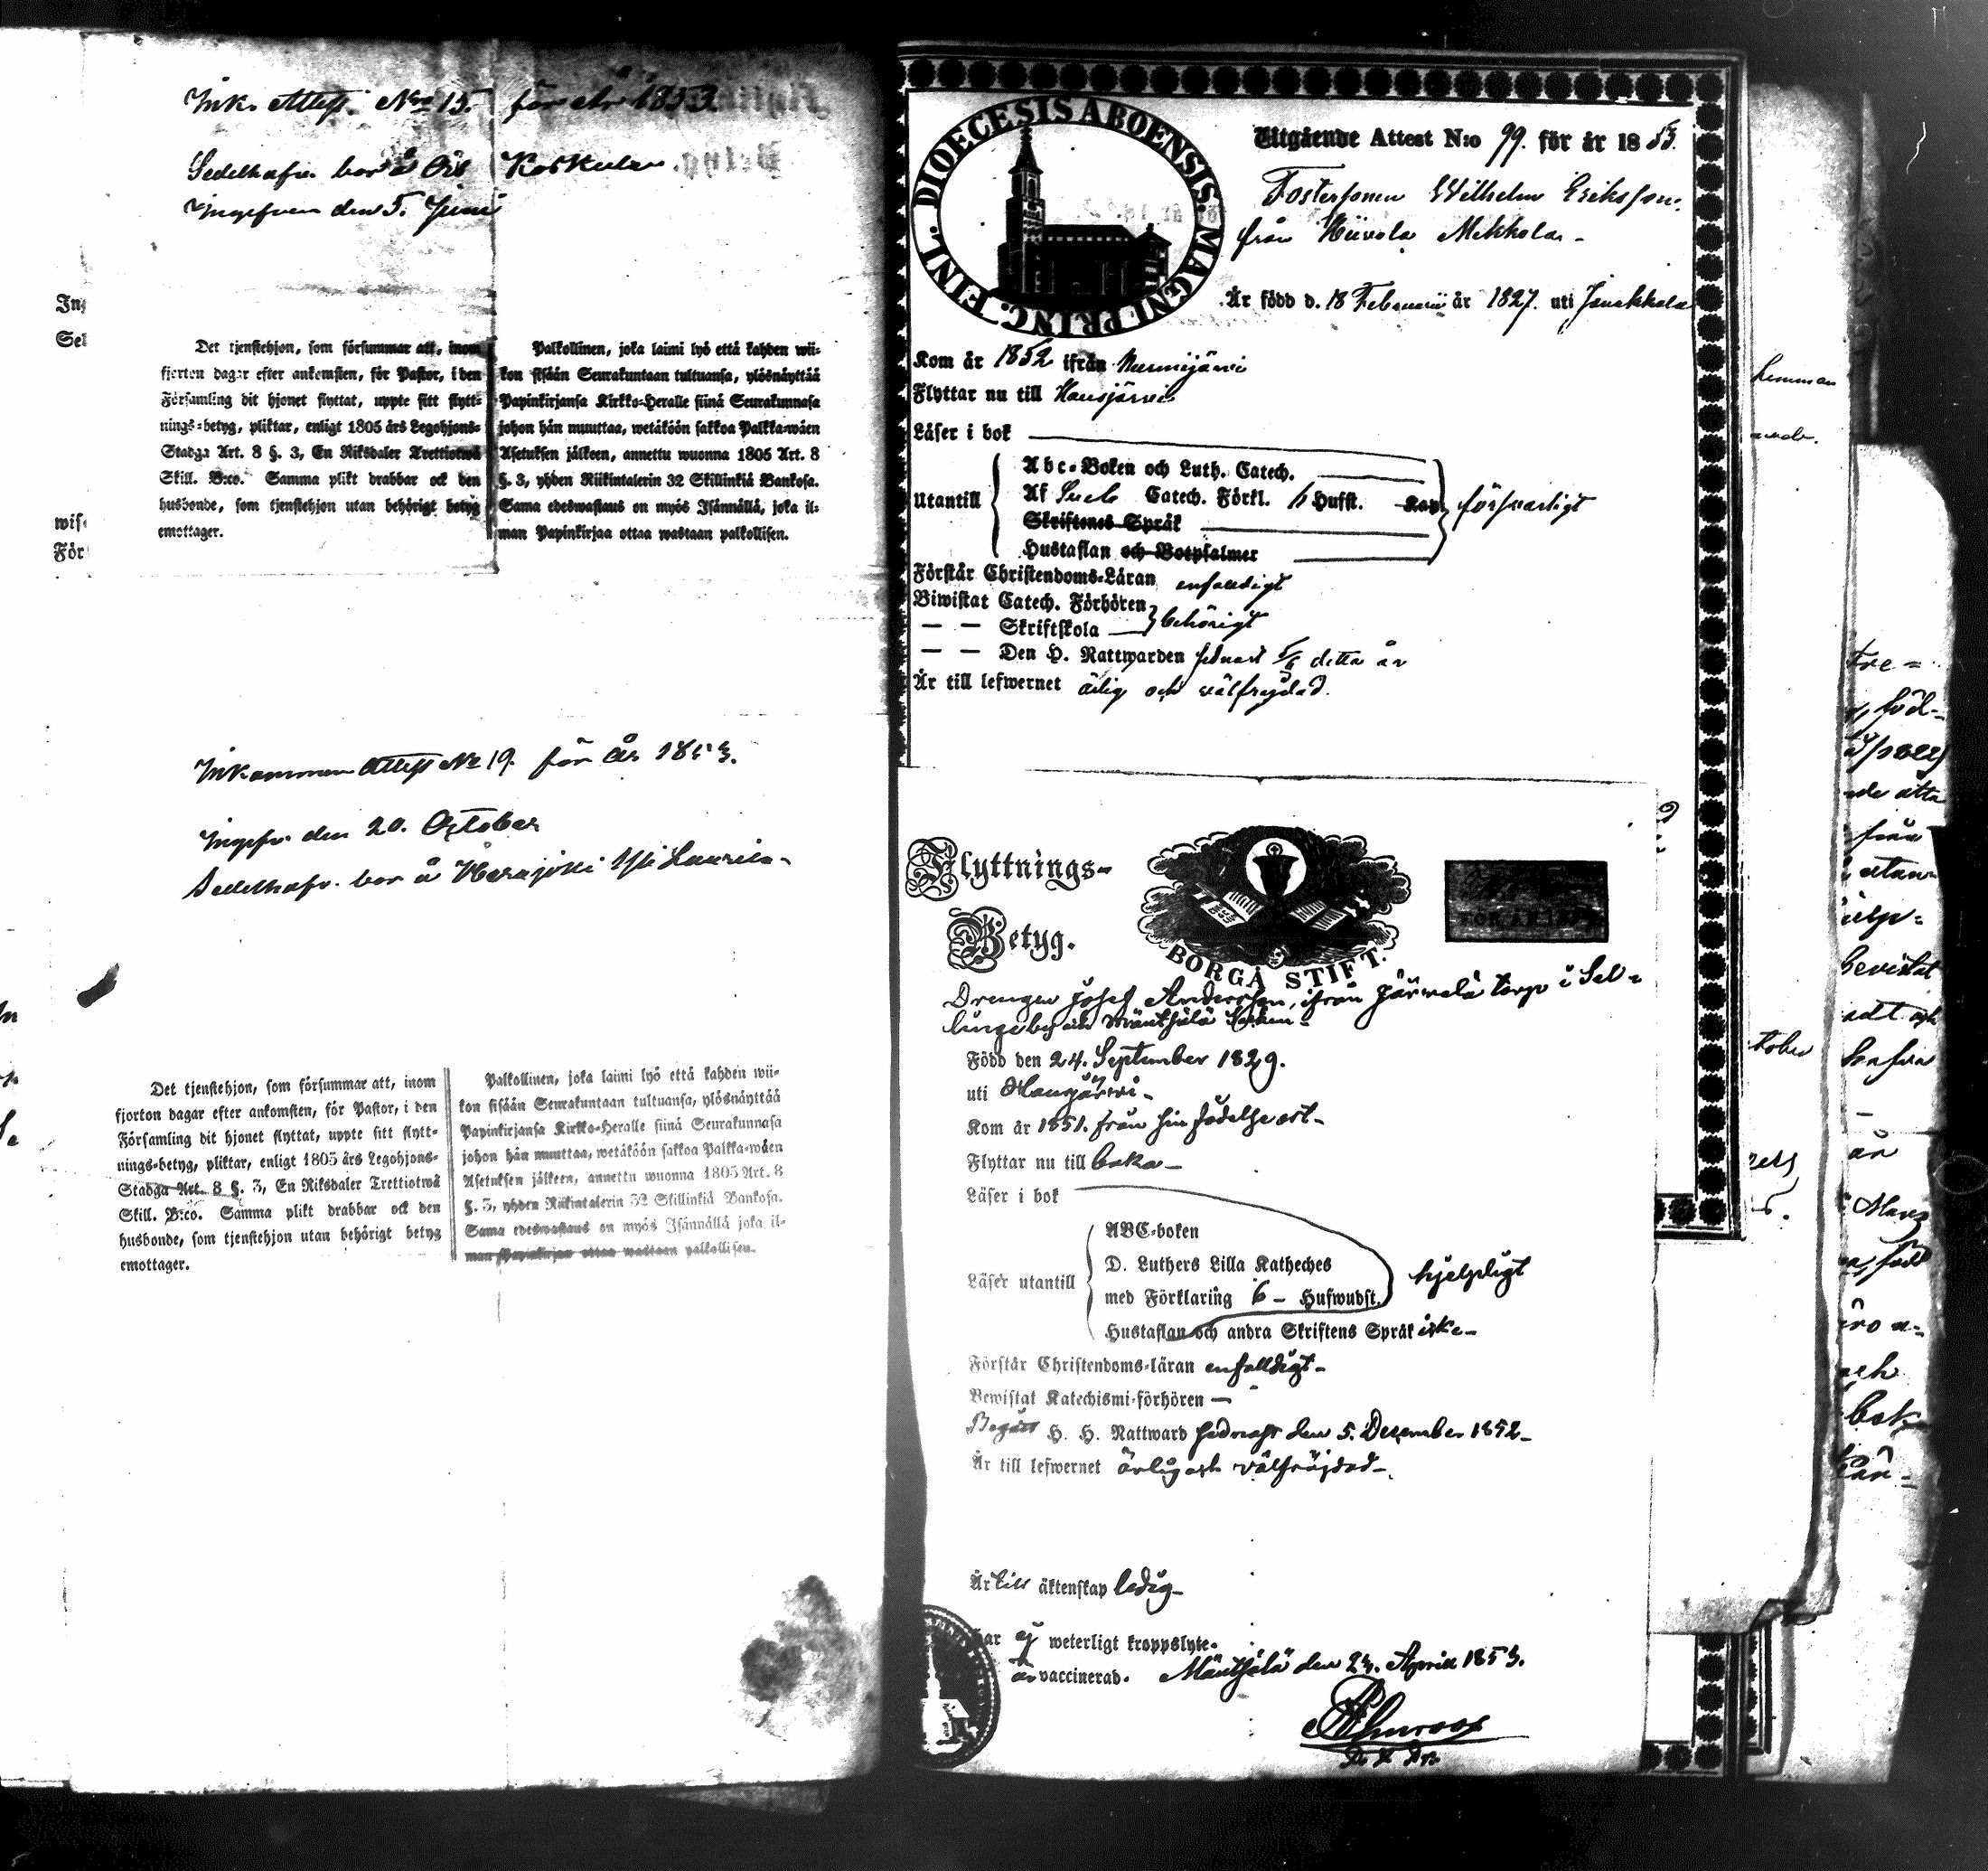 Ink. Attest. Nro 15. för År 1853.
Sedelhafv. bor å Oit Koskula
Ingifven den 5. Juni
Det tjenstehjon, som försummar att, inom
fjorton dagar efter ankomsten, för Pastor, i den
Församling dit hjonet flyttat, uppte sitt flytt-
nings-betyg, pliktar, enligt 1805 års Legohjons-
Stadga Art. 8 §. 3, En Riksdaler Trettiotwå
Skill. B:co. Samma plikt drabbar ock den
husbonde, som tjenstehjon utan behörigt betyg
emottager.
Palkollinen, joka laimi lyö että kahden wii-
kon sisään Seurakuntaan tultuansa, ylösnäyttää
Papinkirjansa Kirkko-Heralle siinä Seurakunnasa
johon hän muuttaa, wetäköön sakkoa Palkka-wäen
Asetuksen jälkeen, annettu wuonna 1805 Art. 8
§. 3, yhden Riikintalerin 32 Skillinkiä Bankosa.
Sama edeswastaus on myös Isännällä, joka il-
man Papinkirjaa ottaa wastaan palkollisen.
Inkommen Attest No 19. för År 1853.
Ingifv. den 20. October
Sedelhafv. bor å Herajoki Yli Laurila
Det tjenstehjon, som försummar att, inom
fjorton dagar efter ankomsten, för Pastor, i den
Församling dit hjonet flyttat, uppte sitt flytt-
nings-betyg, pliktar, enligt 1805 års Legohjons-
Stadga Art. 8 §. 3, En Riksdaler Trettiotwå
Skill. B:co. Samma plikt drabbar ock den
husbonde, som tjenstehjon utan behörigt betyg
emottager.
Palkollinen, joka laimi lyö että kahden wii-
kon sisään Seurakuntaan tultuansa, ylösnäyttää
Papinkirjansa Kirkko-Heralle siinä Seurakunnasa
johon hän muuttaa, wetäköön sakkoa Palkka-wäen
Asetuksen jälkeen, annettu wuonna 1805 Art. 8
§. 3, yhden Riikintalerin 32 Skillinkiä Bankosa.
Sama edeswastaus on myös Isännällä joka il-
man Papinkirjaa ottaa wastaan palkollisen.
DIOECESIS ABOENSIS. MAGNI PRINC. FINL.
Utgående Attest N:o 99. för år 1853.
Fostersonen Wilhelm Eriksson
från Hiivola Mekkola
Är född d. 18 Februarii år 1827. uti Janakkala
Kom år 1852 ifrån Nurmijärvi
Flyttar nu till Hausjärvi
Läser i bok
Utantill
Abc-Boken och Luth. Catech.
Af Sveb Catech. Förkl. 6 Hufst. Kap. försvarligt
Skriftenes Språk
Hustaflan och Botpsalmer
Förstår Christendoms-Läran enfaldigt
Biwistat Catech. Förhören
— — Skriftskola behörigt
— — Den H. Nattwarden sednast 5/6 detta år
Är till lefwernet ärlig och välfrejdad.
Flyttnings-
Betyg.
BORGÅ STIFT.
FÖR ÅR
Drengen Josef Andersson, ifrån Järvelä torp i Säl-
lingeby och Mäntsälä Socken
Född den 24. September 1829.
uti Hausjärvi
Kom år 1851. från sin födelseort
Flyttar nu till baka
Läser i bok
Läser utantill
ABC-boken
D. Luthers Lilla Katheches
med Förklaring 6 Hufwudst. hjelpligt
Hustaflan och andra Skriftens Språk icke
Förstår Christendoms-läran enfalldigt
Bewistat Katechismi-förhören —
Begått H. H. Nattward sednast den 5. December 1852
Är till lefwernet ärlig och välfräjdad
Är till äktenskap ledig
har ej weterligt kroppslyte.
är vaccinerad. Mäntsälä den 23. April 1853.